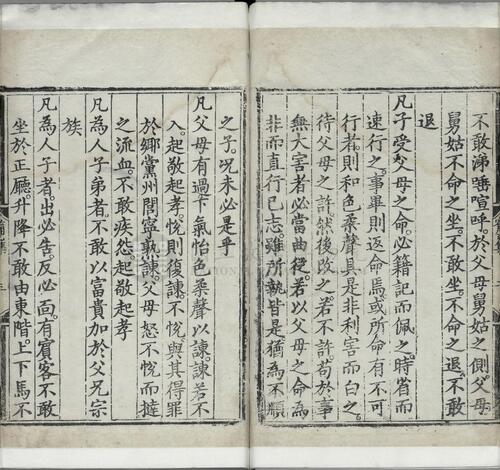 不敢涕唾喧呼。於父母舅姑之側。父母
舅姑不命之坐。不敢坐。不命之退。不敢
退
凡子受父母之命。必籍記而佩之。時省而
速行之。事畢則返命焉。或所命有不可
行者。則和色柔聲。具是非利害而白之。
待父母之許。然後改之。若不許。苟於事
無大害者。必當曲從。若以父母之命為
非而直行己志。雖所執皆是。猶為不順
之子。況未必是乎
凡父母有過。下氣怡色柔聲以諫。諫若不
入。起敬起孝。悅則復諫。不悅。與其得罪
於鄉黨州閭。寧熟諫。父母怒不悅而撻
之流血。不敢疾怨。起敬起孝
凡為人子弟者。不敢以富貴加於父兄宗
族
凡為人子者。出必告。反必面。有賓客不敢
坐於正廳。升降不敢由東階。上下馬不